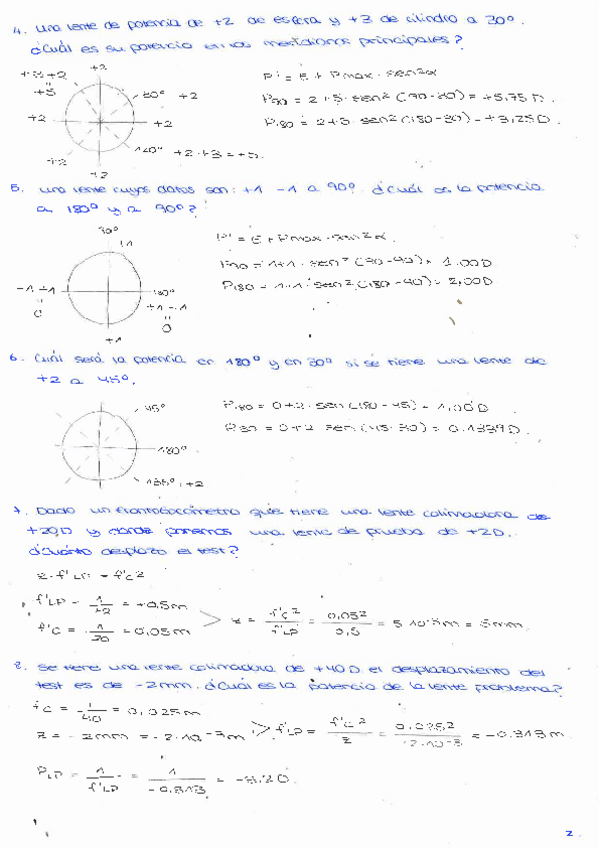 4. Una lente de potencia de +2 de esfera y +3 de cilindro a 30º.
¿Cuál es su potencia en los meridianos principales?
+3+2
+2
+5
+2
+2
+2
+2
+2
120º +2+3=+5.
P' = E + Pmax · sen²α
P90 = 2+3 · sen² (90-30) = +5,75 D.
P180 = 2+3 · sen² (180-30) = +3,25 D.
5. Una lente cuyos datos son: +1 -1 a 90º ¿Cuál es la potencia
a 180º y a 90º?
90º
+1
-1+1
0
180º
+1-1
0
+1
P' = E + Pmax · sen²α.
P90 = 1+1 · sen² (90-90) = 1,00D
P180 = 1+1 · sen² (180-90) = 2,00D
6. Cuál será la potencia en 180º y en 30º si se tiene una lente de
+2 a 45º.
45º
180º
135º: +2
P180 = 0+2 · sen (180-45) = 1,00D
P30 = 0+2 sen (45-30) = 0.1339D.
7. Dado un frontofocómetro que tiene una lente colimadora de
+20D y donde ponemos una lente de prueba de +2D.
¿Cuánto desplazo el test?
z · f'LP = f'c²
f'LP = 1/+2 = +0,5m
f'c = 1/20 = 0,05m
> z = f'c²/f'LP = 0,05²/0,5 = 5·10⁻³m = 5mm.
8. Se tiene una lente colimadora de +40D el desplazamiento del
test es de -2mm. ¿Cuál es la potencia de la lente problema?
fc = 1/40 = 0,025m
z = -2mm = -2·10⁻³m
> f'LP = f'c²/z = 0,025²/-2·10⁻³ = -0.313m.
PLP = 1/f'LP = 1/-0,313 = -3,2D.
2